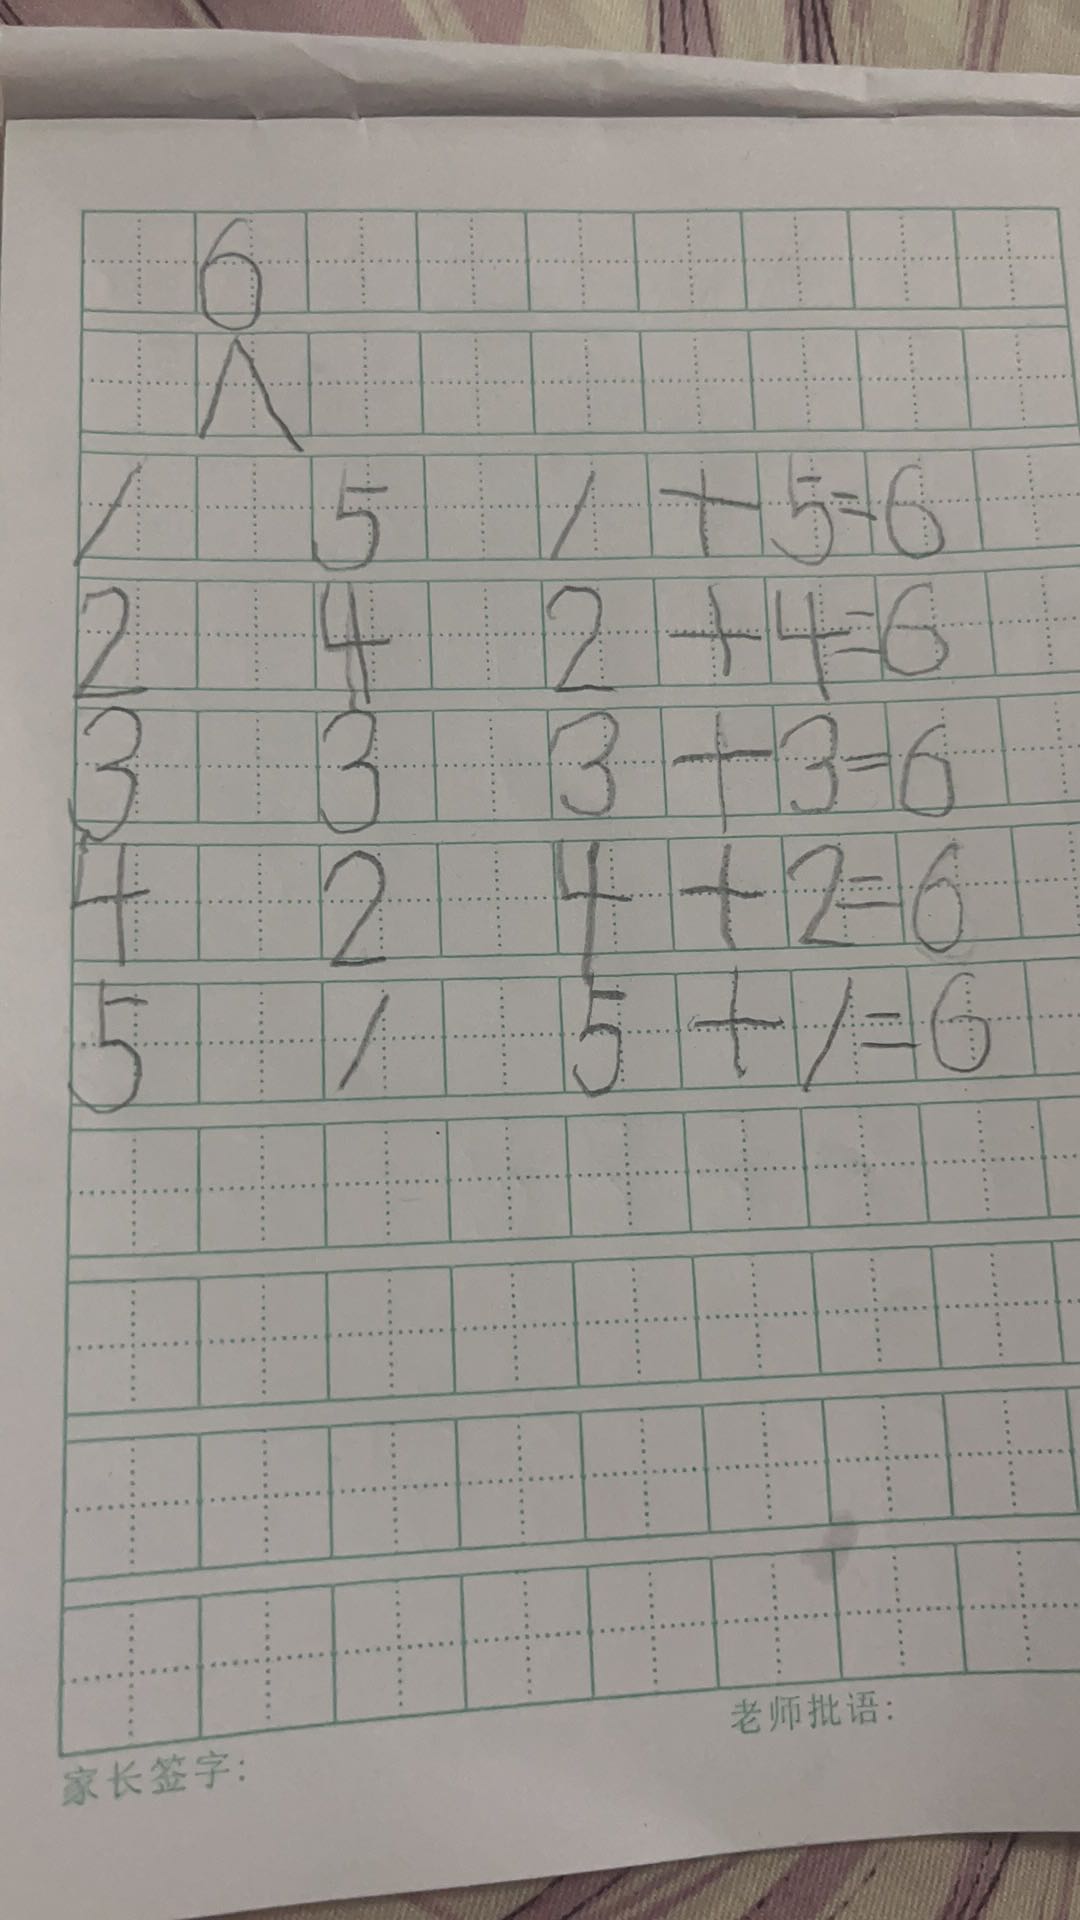 6
∧
1 5 1+5=6
2 4 2+4=6
3 3 3+3=6
4 2 4+2=6
5 1 5+1=6
老师批语:
家长签字: